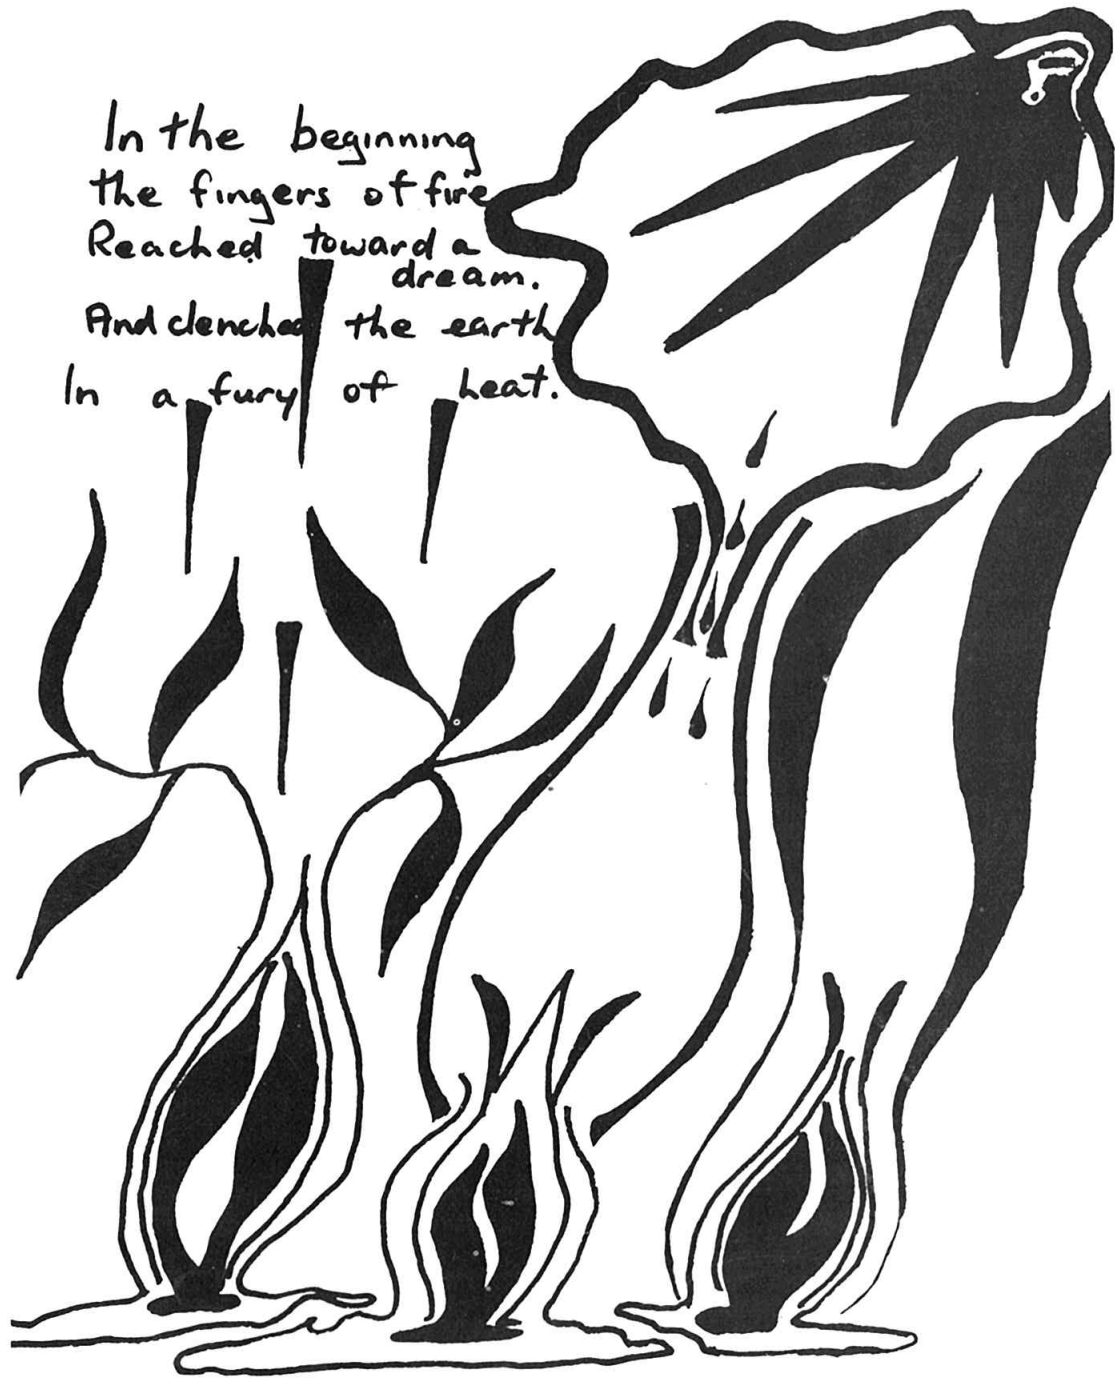 In the beginning
the fingers of fire
Reached toward a
dream.
And clenched the earth
In a fury of heat.